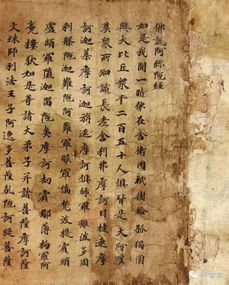 佛說阿弥陁經
如是我聞一時佛在舍衛國祇樹給孤獨園
與大比丘衆千二百五十人俱皆是大阿羅
漢衆所知識長老舍利弗摩訶目揵連摩
訶迦葉摩訶迦旃延摩訶拘絺羅離婆多周
利槃陁難陁阿難羅睺羅憍梵波提賓頭
盧頗羅墮迦留陁夷摩訶劫賓那薄拘羅阿
㝹樓馱如是等諸大弟子并諸菩薩摩訶薩
文殊師利法王子阿逸多菩薩乾陁訶提菩薩